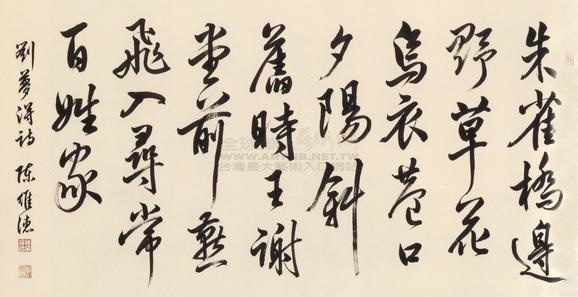 朱雀橋邊
野草花
烏衣巷口
夕陽斜
舊時王謝
堂前燕
飛入尋常
百姓家
劉夢得詩 陳維德
台灣最大藝術入口網站